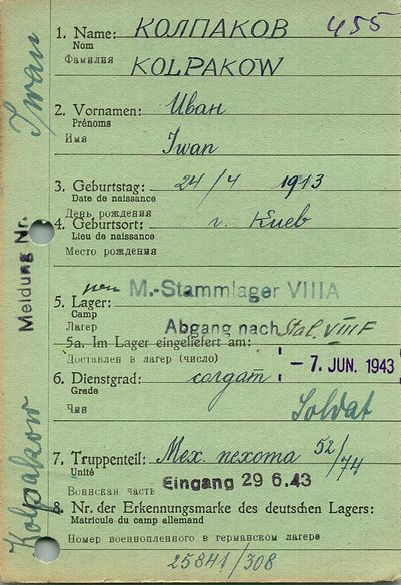 1. Name: КОЛПАКОВ 455
Nom
Фамилия KOLPAKOW
2. Vornamen: Иван
Prénoms
Имя Iwan
3. Geburtstag: 24/4 1913
Date de naissance
День рождения
4. Geburtsort: г. Киев
Lieu de naissance
Место рождения
M.-Stammlager VIIIA
5. Lager:
Camp
Лагер Abgang nach Stal. VIII F
5a. Im Lager eingeliefert am:
Доставлен в лагер (число) - 7. JUN. 1943
6. Dienstgrad: солдат
Grade
Чин Soldat
7. Truppenteil: Мех. пехота 52/74
Unité
Воинская часть Eingang 29 6.43
8. Nr. der Erkennungsmarke des deutschen Lagers:
Matricule du camp allemand
Номер военнопленного в германском лагере
25841/308
Meldung Nr.
Kolpakow
Iwan